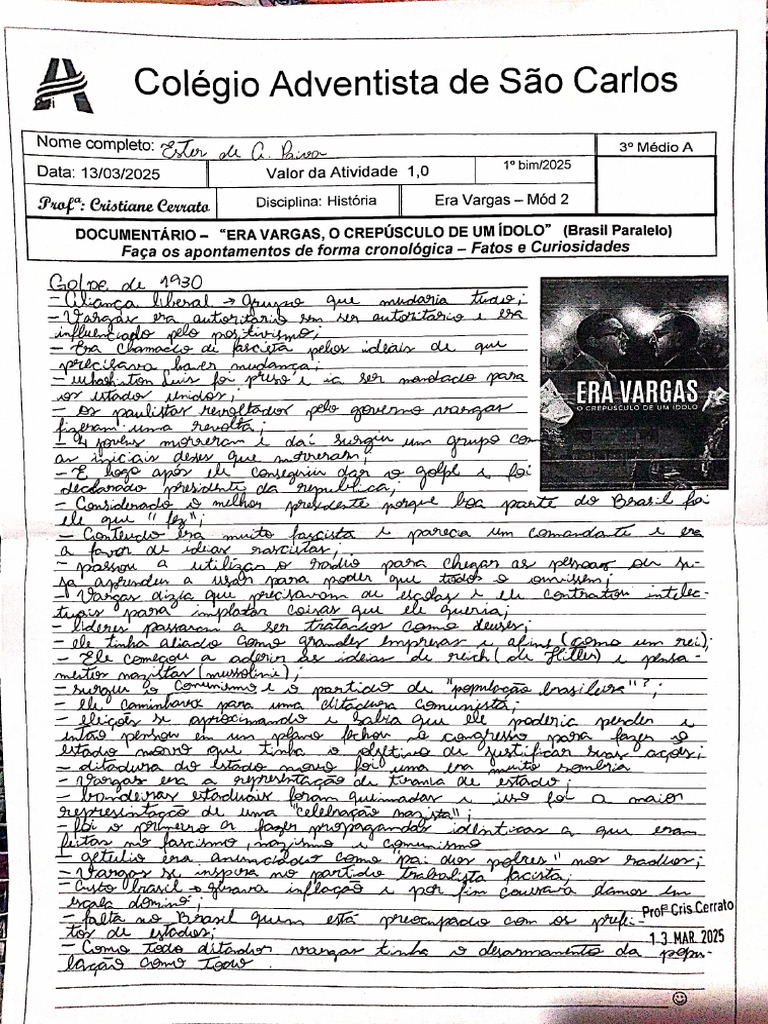 Colégio Adventista de São Carlos
Nome completo: Ester de A. Paiva
3º Médio A
Data: 13/03/2025
Valor da Atividade 1,0
1º bim/2025
Profª: Cristiane Cerrato
Disciplina: História
Era Vargas – Mód 2
DOCUMENTÁRIO – “ERA VARGAS, O CREPÚSCULO DE UM ÍDOLO” (Brasil Paralelo)
Faça os apontamentos de forma cronológica – Fatos e Curiosidades
Golpe de 1930
- Aliança liberal → grupo que mudaria tudo;
- Vargas era autoritario sem ser autoritário e era
influenciado pelo positivismo;
- Era chamado de fascista pelos ideais de que
precisava haver mudança;
- Whashinton Luis foi preso e ia ser mandado para
os estados unidos;
- os paulistas revoltados pelo governo vargas
fizeram uma revolta;
- 4 jovens morreram e daí surgiu um grupo com
as iniciais deses que morreram;
- E logo após ele conseguiu dar o golpe e foi
declarado presidente da republica;
- Considerado o melhor presidente porque boa parte do Brasil foi
ele que "fez";
- Contudo era muito fascista e parecia um comandante e era
a favor de ideias
- passou a utilizar o rádio para chegar as pessoas ou se-
ja aprendeu a usar para poder que todos o ouvissem;
- Vargas dizia que precisavam de escolas e ele contratou intelec-
tuais para implatar coisas que ele queria;
- lideres passaram a ser tratados como deuses;
- ele tinha aliado como grandes empresas e afins (como um rei);
- Ele começou a aderir as ideias de reich (de Hitler) e pensa-
mentos nazistas (mussoline);
- surgiu o comunismo e o partido de "população brasileira"?;
- ele caminhava para uma ditadura comunista;
- eleições se aproximando e sabia que ele poderia perder e
então pensou em um plano fechou o congresso para fazer o
estado novo que tinha o objetivo de justificar suas ações;
- ditadura do estado novo foi uma era muito sombria
- Vargas era a representação de tirania de estado;
- bandeiras estaduais foram queimadas e isso foi a maior
representação de uma "celebração nazista";
- foi o primeiro a fazer propagandas idênticas a que eram
feitas no fascismo, nazismo e comunismo
- getulio era anunciado como "pai dos pobres" nos radios;
- Vargas se inspira no partido trabalista facista;
- Custo brasil → gerava inflação e por fim causava danos em
escala domino;
- falta no Brasil quem está preocupado com os prefei-
tos de estados;
- Como todo ditador vargas tinha o desarmamento da popu-
lação como
ERA VARGAS
O CREPÚSCULO DE UM ÍDOLO
Profª Cris Cerrato
13 MAR. 2025